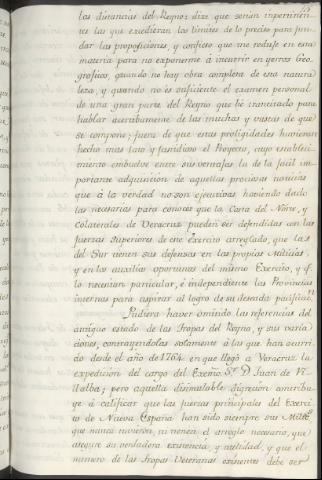 las distancias del Reyno: dixe que serian impertinen-
tes las que excedieran los limites de lo preciso para fun-
dar las proposiciones, y confieso que me reduje en esta
materia para no exponerme á incurrir en yerros Geo-
graficos, quando no hay obra completa de esta natura
leza, y quando no es suficiente el examen personal
de una gran parte del Reyno que hé transitado para
hablar acertivamente de las muchas y vastas de que
se compone; fuera de que estas prolijidades huvieran
hecho mas lato y fastidioso el Proyecto, cuyo estableci-
miento embuelve entre sus ventajas la de la facil im-
portante adquisicion de aquellas precisas noticias
que á la verdad no son ejecutivas haviendo dado
las necesarias para conocer que la Costa del Norte, y
colaterales de Veracruz pueden ser defendidas con las
fuerzas superiores de este Exercito arreglado, que las
del Sur vienen sus defensas en las propias Milicias,
y en los auxilios oportunos del mismo Exercito, y qe.
lo necesitan particular, é independiente las Provincias
internas para aspirar al logro de su deseada pacificac.on
Pudiera haver omitido las referencias del
antiguo estado de las Tropas del Reyno, y sus varia
ciones, contrayendolas solamente á las que han ocurri
do desde el año de 1764. en que llegó a Veracruz la
expedicion del cargo del Exemo. Sr. D Juan de Vi-
llalba; pero aquella disimulable digresion contribu-
ye á calificar que las fuerzas principales del Exerci
to de Nueva España han sido siempre sus Milic.s
que nunca tuvieron, ni tienen el arreglo necesario, que
asegure su verdadera existencia, y utilidad, y que el
numero de las Tropas Veteranas existentes debe ser